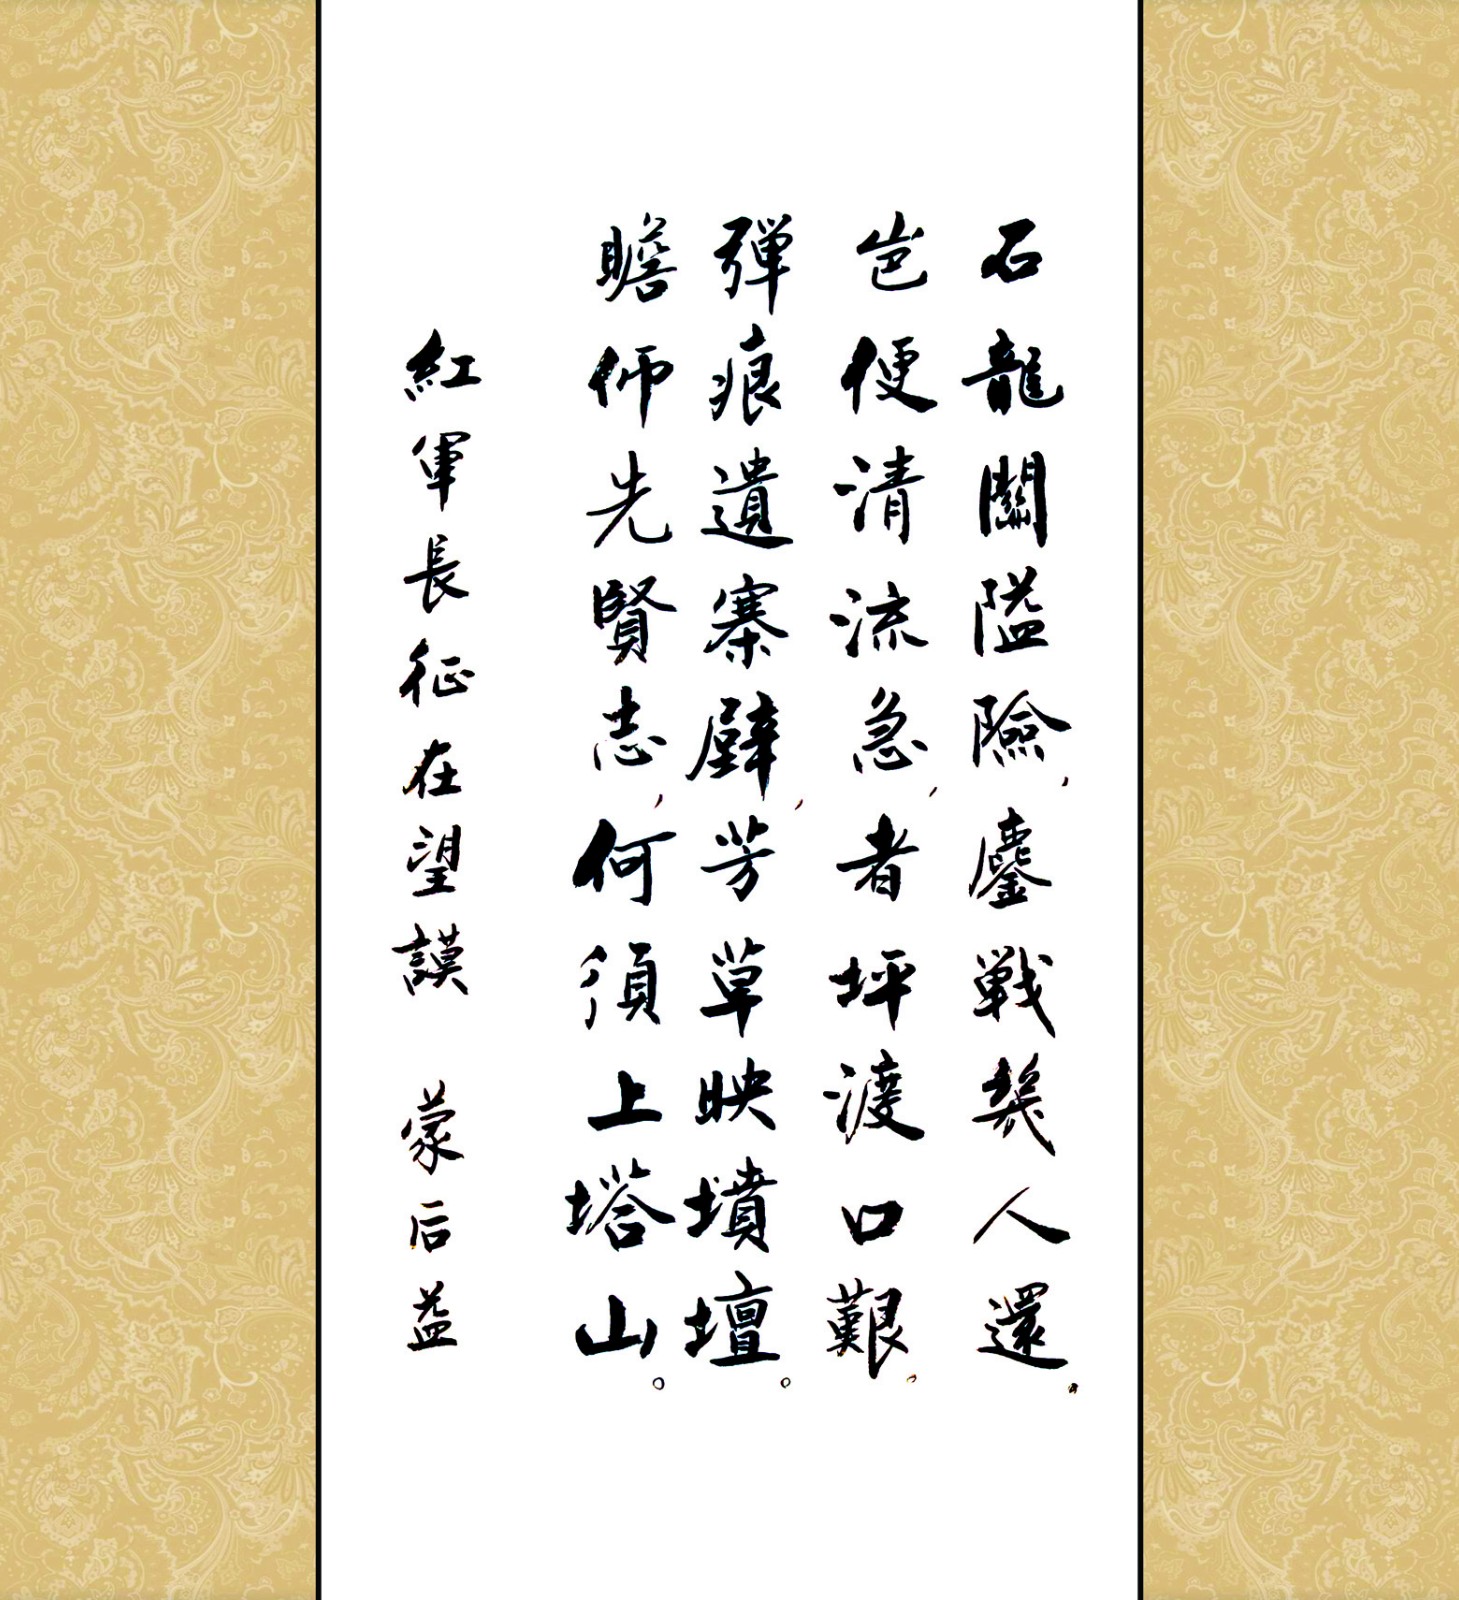 石龍關隘險，鏖戰幾人還。
岜便清流急，者坪渡口艱，
彈痕遺寨壁，芳草映墳壇。
瞻仰先賢志，何須上塔山。
紅軍長征在望謨 蒙后益